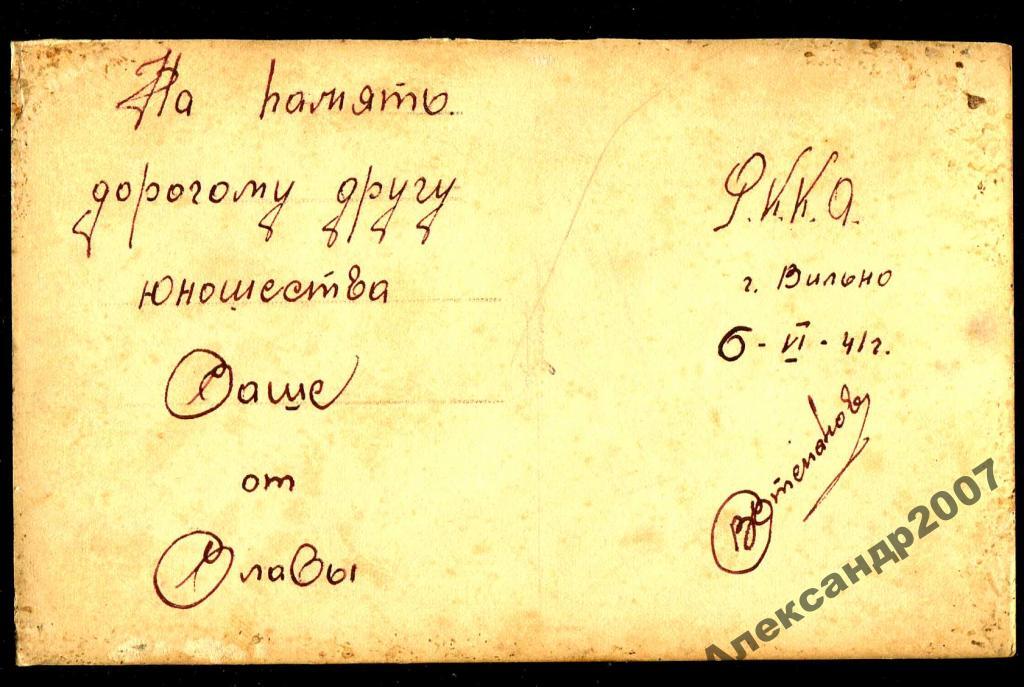 На память.
дорогому другу
юношества
Саше
от
Славы
Р.К.К.А.
г. Вильно
6 - VI - 41г.
ВСтепанов
Александр2007